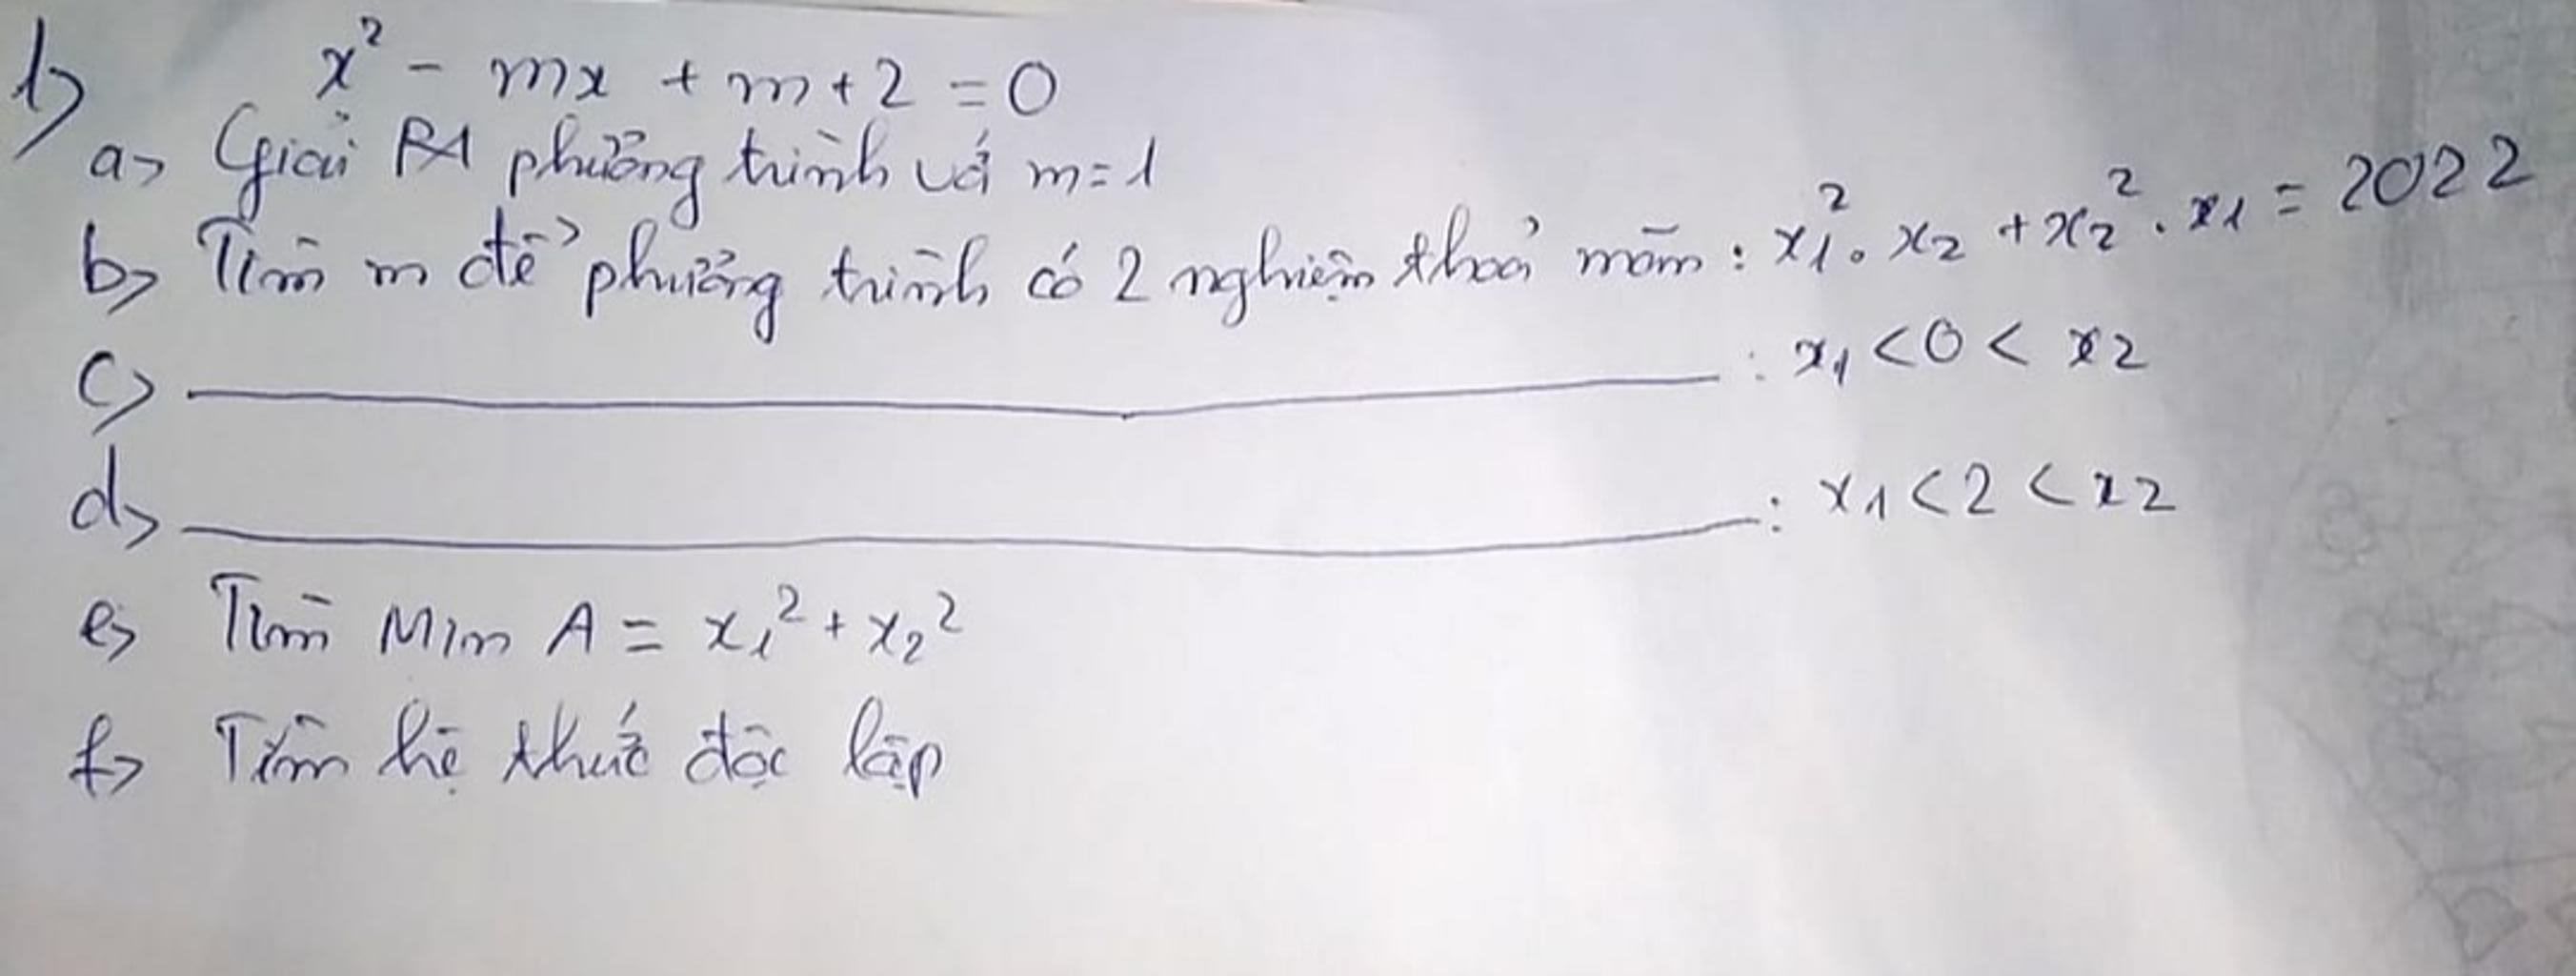 1) x² - mx + m + 2 = 0
a> Giải PA phương trình với m = 1
b> Tìm m để phương trình có 2 nghiệm thoả mãn : x₁² . x₂ + x₂² . x₁ = 2022
c> ________ : x₁ < 0 < x₂
d> ________ : x₁ < 2 < x₂
e> Tìm Min A = x₁² + x₂²
f> Tìm hệ thức độc lập